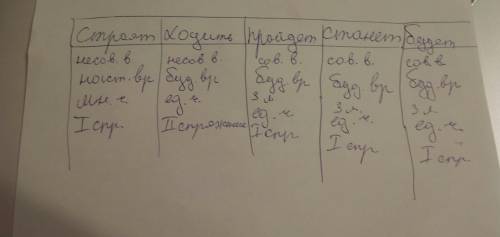 Строят Ходить Пройдет Станет Будет
несов. в несов в. сов. в. сов. в. сов в
наст. вр буд вр буд вр буд вр буд. вр
мн. ч. ед. ч. 3 л 3 л. 3 л
I спр. II спряжение ед. ч ед. ч. ед. ч.
I спр I спр I спр